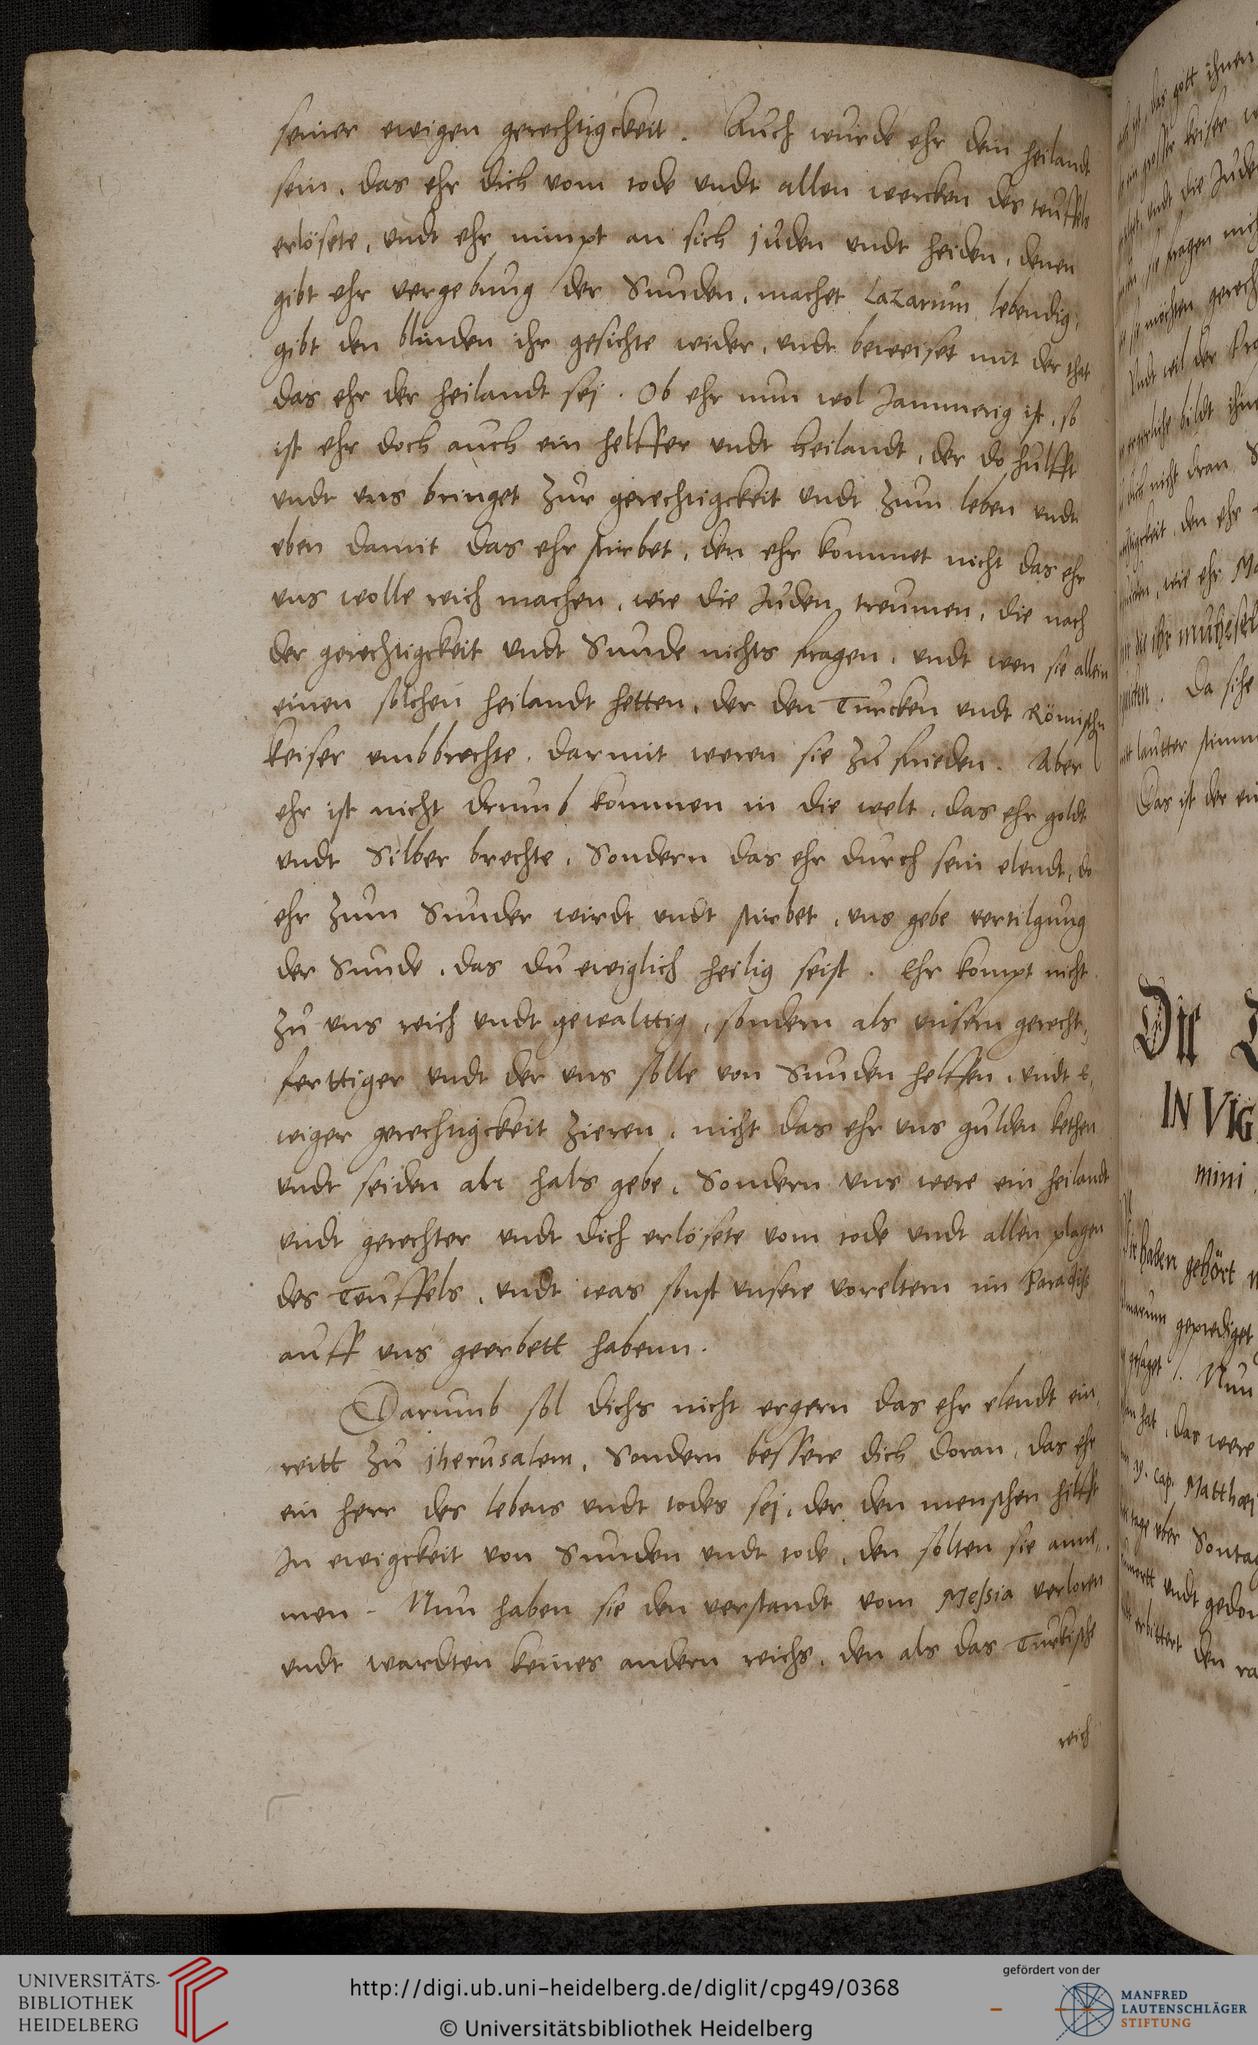 seiner ewigen gerechtigckeit. Auch wurde ehr dein heilandt
sein, das ehr dich vom tode undt allen wercken des teuffels
erlösete, undt ehr nimpt an sich juden undt heiden, denen
gibt ehr vergebung der Sunden, machet Lazarum lebendig,
gibt den blinden ihr gesichte wider, undt beweiset mit der that
das ehr der heilandt sej. Ob ehr nun wol Jammerig ist, so
ist ehr doch auch ein helffer undt heilandt, der do hulfft
undt uns bringet zur gerechtigckeit undt zum leben undt
eben damit das ehr stirbet, den ehr kommet nicht das ehr
uns wolle reich machen, wie die Juden treumen, die nach
der gerechtigckeit undt Sunde nichts fragen, undt wen sie allein
einen solchen heilandt hetten, der den Turcken undt Römischen
keiser umbbrechte, darmit weren sie zu frieden. Aber
ehr ist nicht drumb kommen in die welt, das ehr goldt
undt Silber brechte, Sondern das ehr durch sein elendt, do
ehr zum Sunder wirdt undt stirbet, uns gebe vertilgung
der Sunde, das du ewiglich heilig seist. Ehr kompt nicht
zu uns reich undt gewalttig, sondern als unsern gerecht,
ferttiger undt der uns solle von Sunden helffen, undt e,
wiger gerechtigckeit zieren, nicht das ehr uns gulden kethen
undt seiden ahn hals gebe, Sondern uns were ein heilandt
undt gerechter undt dich erlösete vom tode undt allen plagen
des Teuffels, undt was sonst unsere voreltern im Paradiss
auff uns geerbett habenn.
Darumb sol dichs nicht ergern das ehr elendt ein,
reitt zu Jherusalem, Sondern bessere dich doran, das ehr
ein herr des lebens undt todes sej, der den menschen hilfft
In ewigckeit von Sunden undt tode, den solten sie anne,
men. Nun haben sie den verstandt vom Messia verloren
undt wardten keines andern reichs, den als das Turkische
reich
das gott ihnen
keiser
undt die Jude
fragen nich
möchten gerech
Undt wil der
bildt ihn
nicht dran
den ehr
wie ehr
Da sihe
lautter stimm
Das ist der ein
Die
IN VIG
mini
haben gehört
geprediget
gesaget. Nun
hat, das were
cap. Matthaej
tage uber Sontag
undt
erbittert den
UNIVERSITÄTS-
BIBLIOTHEK
HEIDELBERG
http://digi.ub.uni-heidelberg.de/diglit/cpg49/0368
© Universitätsbibliothek Heidelberg
gefördert von der
MANFRED
LAUTENSCHLÄGER
STIFTUNG